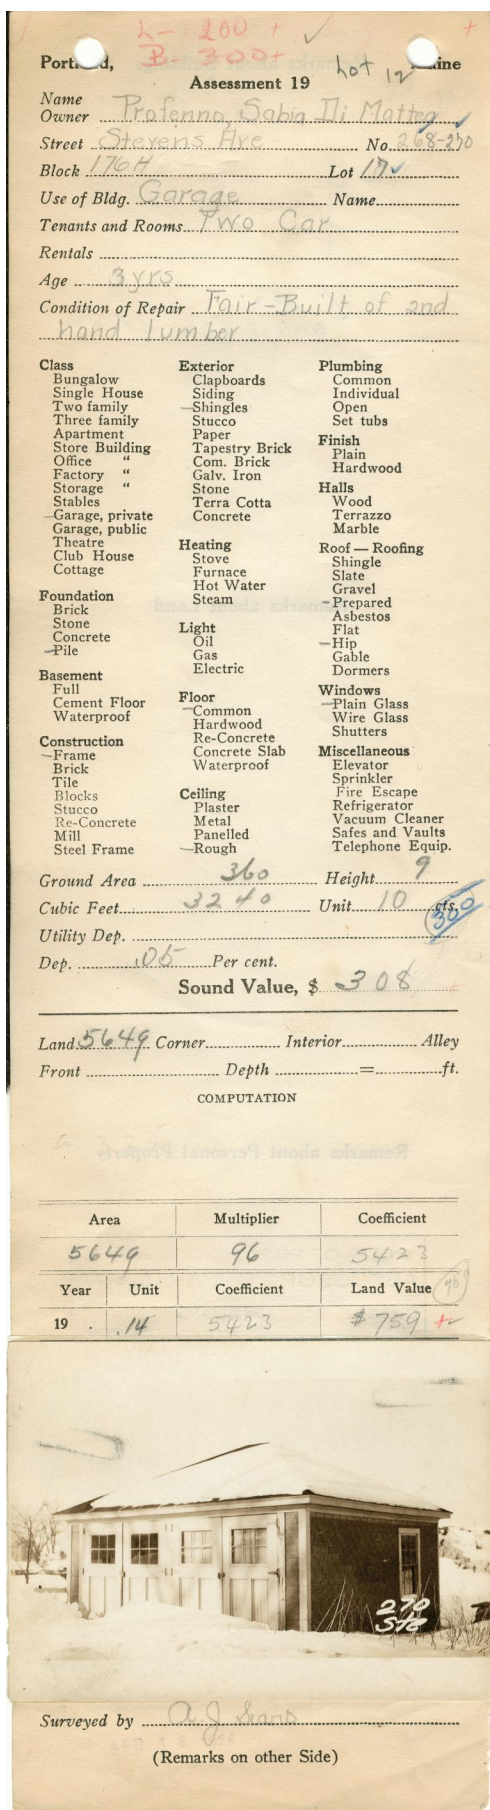 L- 200 +
B 300+
Lot 12
Portland, Maine
Assessment 19
Name
Owner Profenno, Sabia Di Matteo
Street Stevens Ave No. 268-270
Block 176H Lot 17
Use of Bldg. Garage Name
Tenants and Rooms Two Car
Rentals
Age 3 yrs
Condition of Repair Fair-Built of 2nd
hand lumber
Class
Bungalow
Single House
Two family
Three family
Apartment
Store Building
Office "
Factory "
Storage "
Stables
Garage, private
Garage, public
Theatre
Club House
Cottage
Foundation
Brick
Stone
Concrete
Pile
Basement
Full
Cement Floor
Waterproof
Construction
Frame
Brick
Tile
Blocks
Stucco
Re-Concrete
Mill
Steel Frame
Exterior
Clapboards
Siding
Shingles
Stucco
Paper
Tapestry Brick
Com. Brick
Galv. Iron
Stone
Terra Cotta
Concrete
Heating
Stove
Furnace
Hot Water
Steam
Light
Oil
Gas
Electric
Floor
Common
Hardwood
Re-Concrete
Concrete Slab
Waterproof
Ceiling
Plaster
Metal
Panelled
Rough
Plumbing
Common
Individual
Open
Set tubs
Finish
Plain
Hardwood
Halls
Wood
Terrazzo
Marble
Roof — Roofing
Shingle
Slate
Gravel
Prepared
Asbestos
Flat
Hip
Gable
Dormers
Windows
Plain Glass
Wire Glass
Shutters
Miscellaneous
Elevator
Sprinkler
Fire Escape
Refrigerator
Vacuum Cleaner
Safes and Vaults
Telephone Equip.
Ground Area 360 Height 9
Cubic Feet 3240 Unit 10 cts.
300
Utility Dep.
Dep. .05 Per cent.
Sound Value, $ 308
Land 5649 Corner Interior Alley
Front Depth = ft.
COMPUTATION
Area Multiplier Coefficient
5649 96 5423
Year Unit Coefficient Land Value
19 . .14 5423 $759
270
Ste
Surveyed by A.J. Sears
(Remarks on other Side)